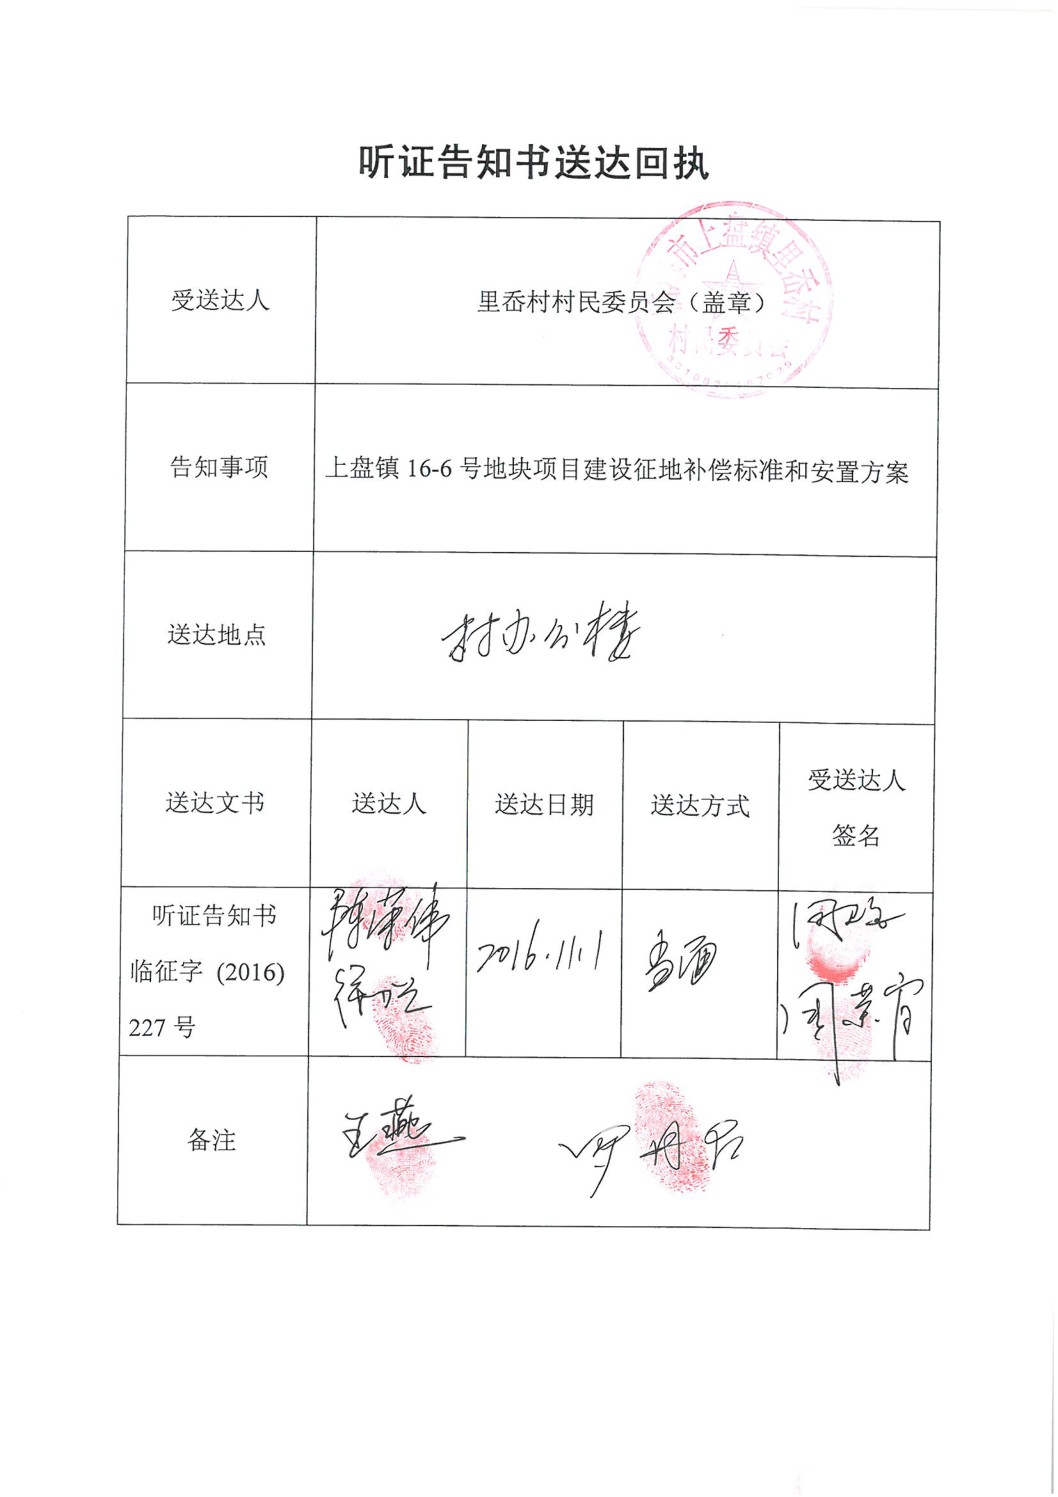 听证告知书送达回执
受送达人
里岙村村民委员会（盖章）
市上盘镇里岙村
村民委员会
告知事项
上盘镇 16-6 号地块项目建设征地补偿标准和安置方案
送达地点
村办公楼
送达文书
送达人
送达日期
送达方式
受送达人
签名
听证告知书
临征字 (2016)
227 号
陈荣伟
2016.11.1
当面
备注
王燕